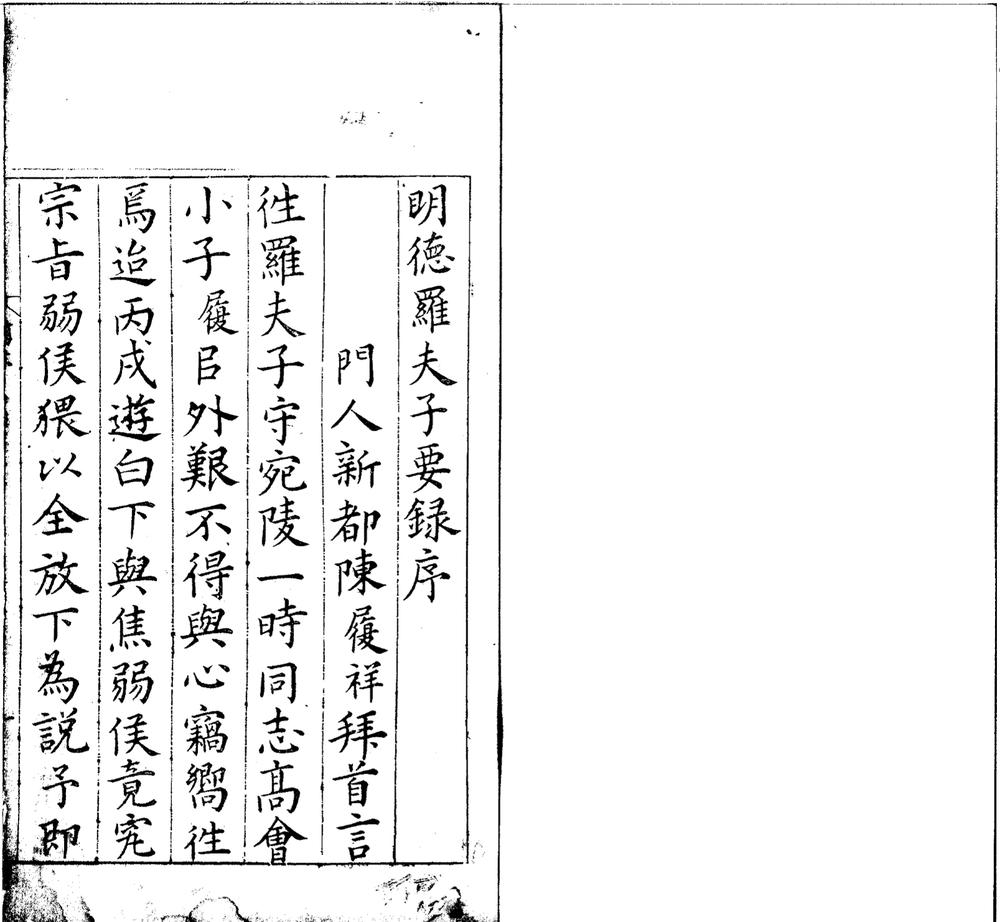 明德羅夫子要錄序
門人新都陳履祥拜首言
徃羅夫子守宛陵一時同志高會
小子履㠯外艱不得與心竊嚮徃
焉迨丙戌遊白下與焦弱侯竟究
宗旨弱侯猥以全放下為說予即